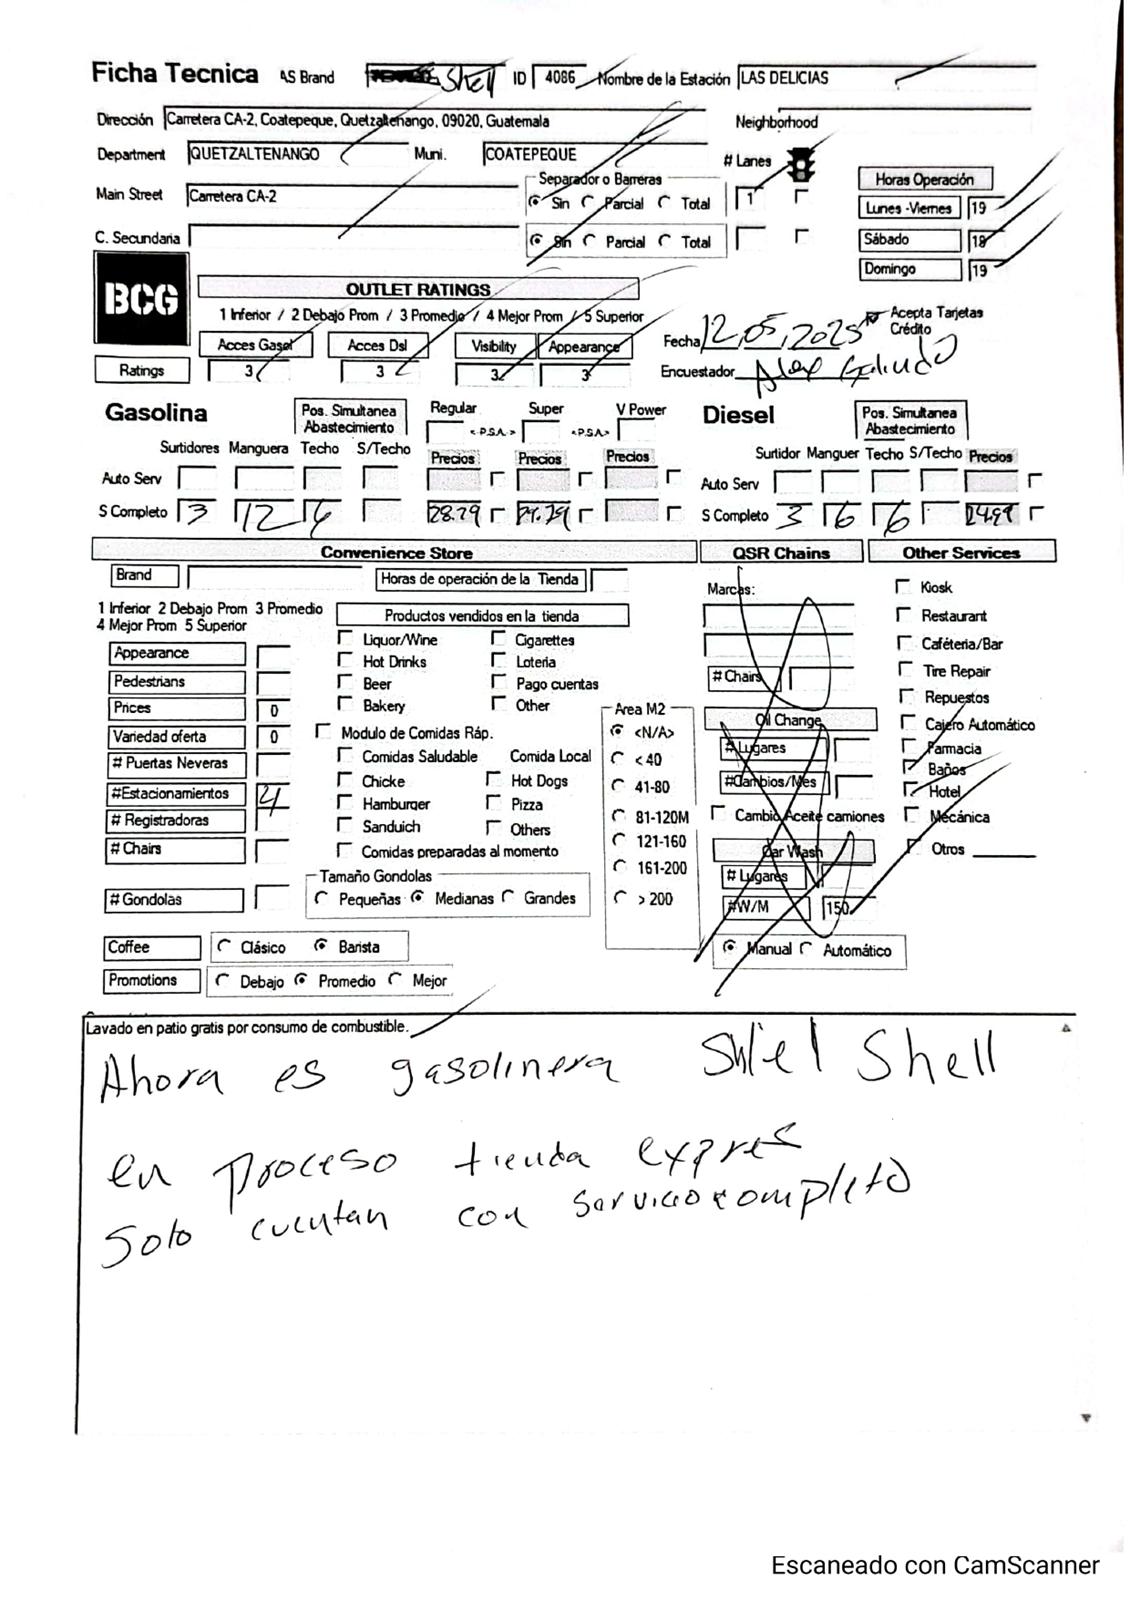 Ficha Tecnica AS Brand Shell ID 4086 Nombre de la Estación LAS DELICIAS
Dirección Carretera CA-2, Coatepeque, Quetzaltenango, 09020, Guatemala Neighborhood
Department QUETZALTENANGO Muni. COATEPEQUE # Lanes
Separador o Barreras Horas Operación
Main Street Carretera CA-2 Sin Parcial Total 1 Lunes -Viernes 19
C. Secundaria Sin Parcial Total Sábado 19
Domingo 19
BCG OUTLET RATINGS
1 Inferior / 2 Debajo Prom / 3 Promedio / 4 Mejor Prom / 5 Superior
Acepta Tarjetas Crédito
Acces Gasol Acces Dsl Visibility Appearance Fecha 12,05,2025
Ratings 3 3 3 3 Encuestador Alex Galindo
Gasolina Pos. Simultanea Abastecimiento Regular Super V Power Diesel Pos. Simultanea Abastecimiento
<-P.S.A.-> <-P.S.A>
Surtidores Manguera Techo S/Techo Precios Precios Precios Surtidor Manguer Techo S/Techo Precios
Auto Serv Auto Serv
S Completo 3 12 6 28.79 29.79 S Completo 3 6 6 24.99
Convenience Store QSR Chains Other Services
Brand Horas de operación de la Tienda Marcas: Kiosk
1 Inferior 2 Debajo Prom 3 Promedio Productos vendidos en la tienda Restaurant
4 Mejor Prom 5 Superior
Liquor/Wine Cigarettes Caféteria/Bar
Appearance Hot Drinks Loteria Tire Repair
Pedestrians Beer Pago cuentas # Chairs Repuestos
Prices 0 Bakery Other Area M2
Variedad oferta 0 Modulo de Comidas Ráp. <N/A> Oil Change Cajero Automático
# Puertas Neveras Comidas Saludable Comida Local < 40 # Lugares Farmacia
Baños
#Estacionamientos 4 Chicke Hot Dogs 41-80 #Cambios/Mes Hotel
# Registradoras Hamburger Pizza 81-120M Cambio Aceite camiones Mecánica
Sanduich Others 121-160
# Chairs Comidas preparadas al momento Car Wash Otros
Tamaño Gondolas 161-200 # Lugares
# Gondolas Pequeñas Medianas Grandes > 200 #W/M 150
Coffee Clásico Barista Manual Automático
Promotions Debajo Promedio Mejor
Lavado en patio gratis por consumo de combustible.
Ahora es gasolinera Shell
en proceso tienda expres
Solo cuentan con servicio completo
Escaneado con CamScanner